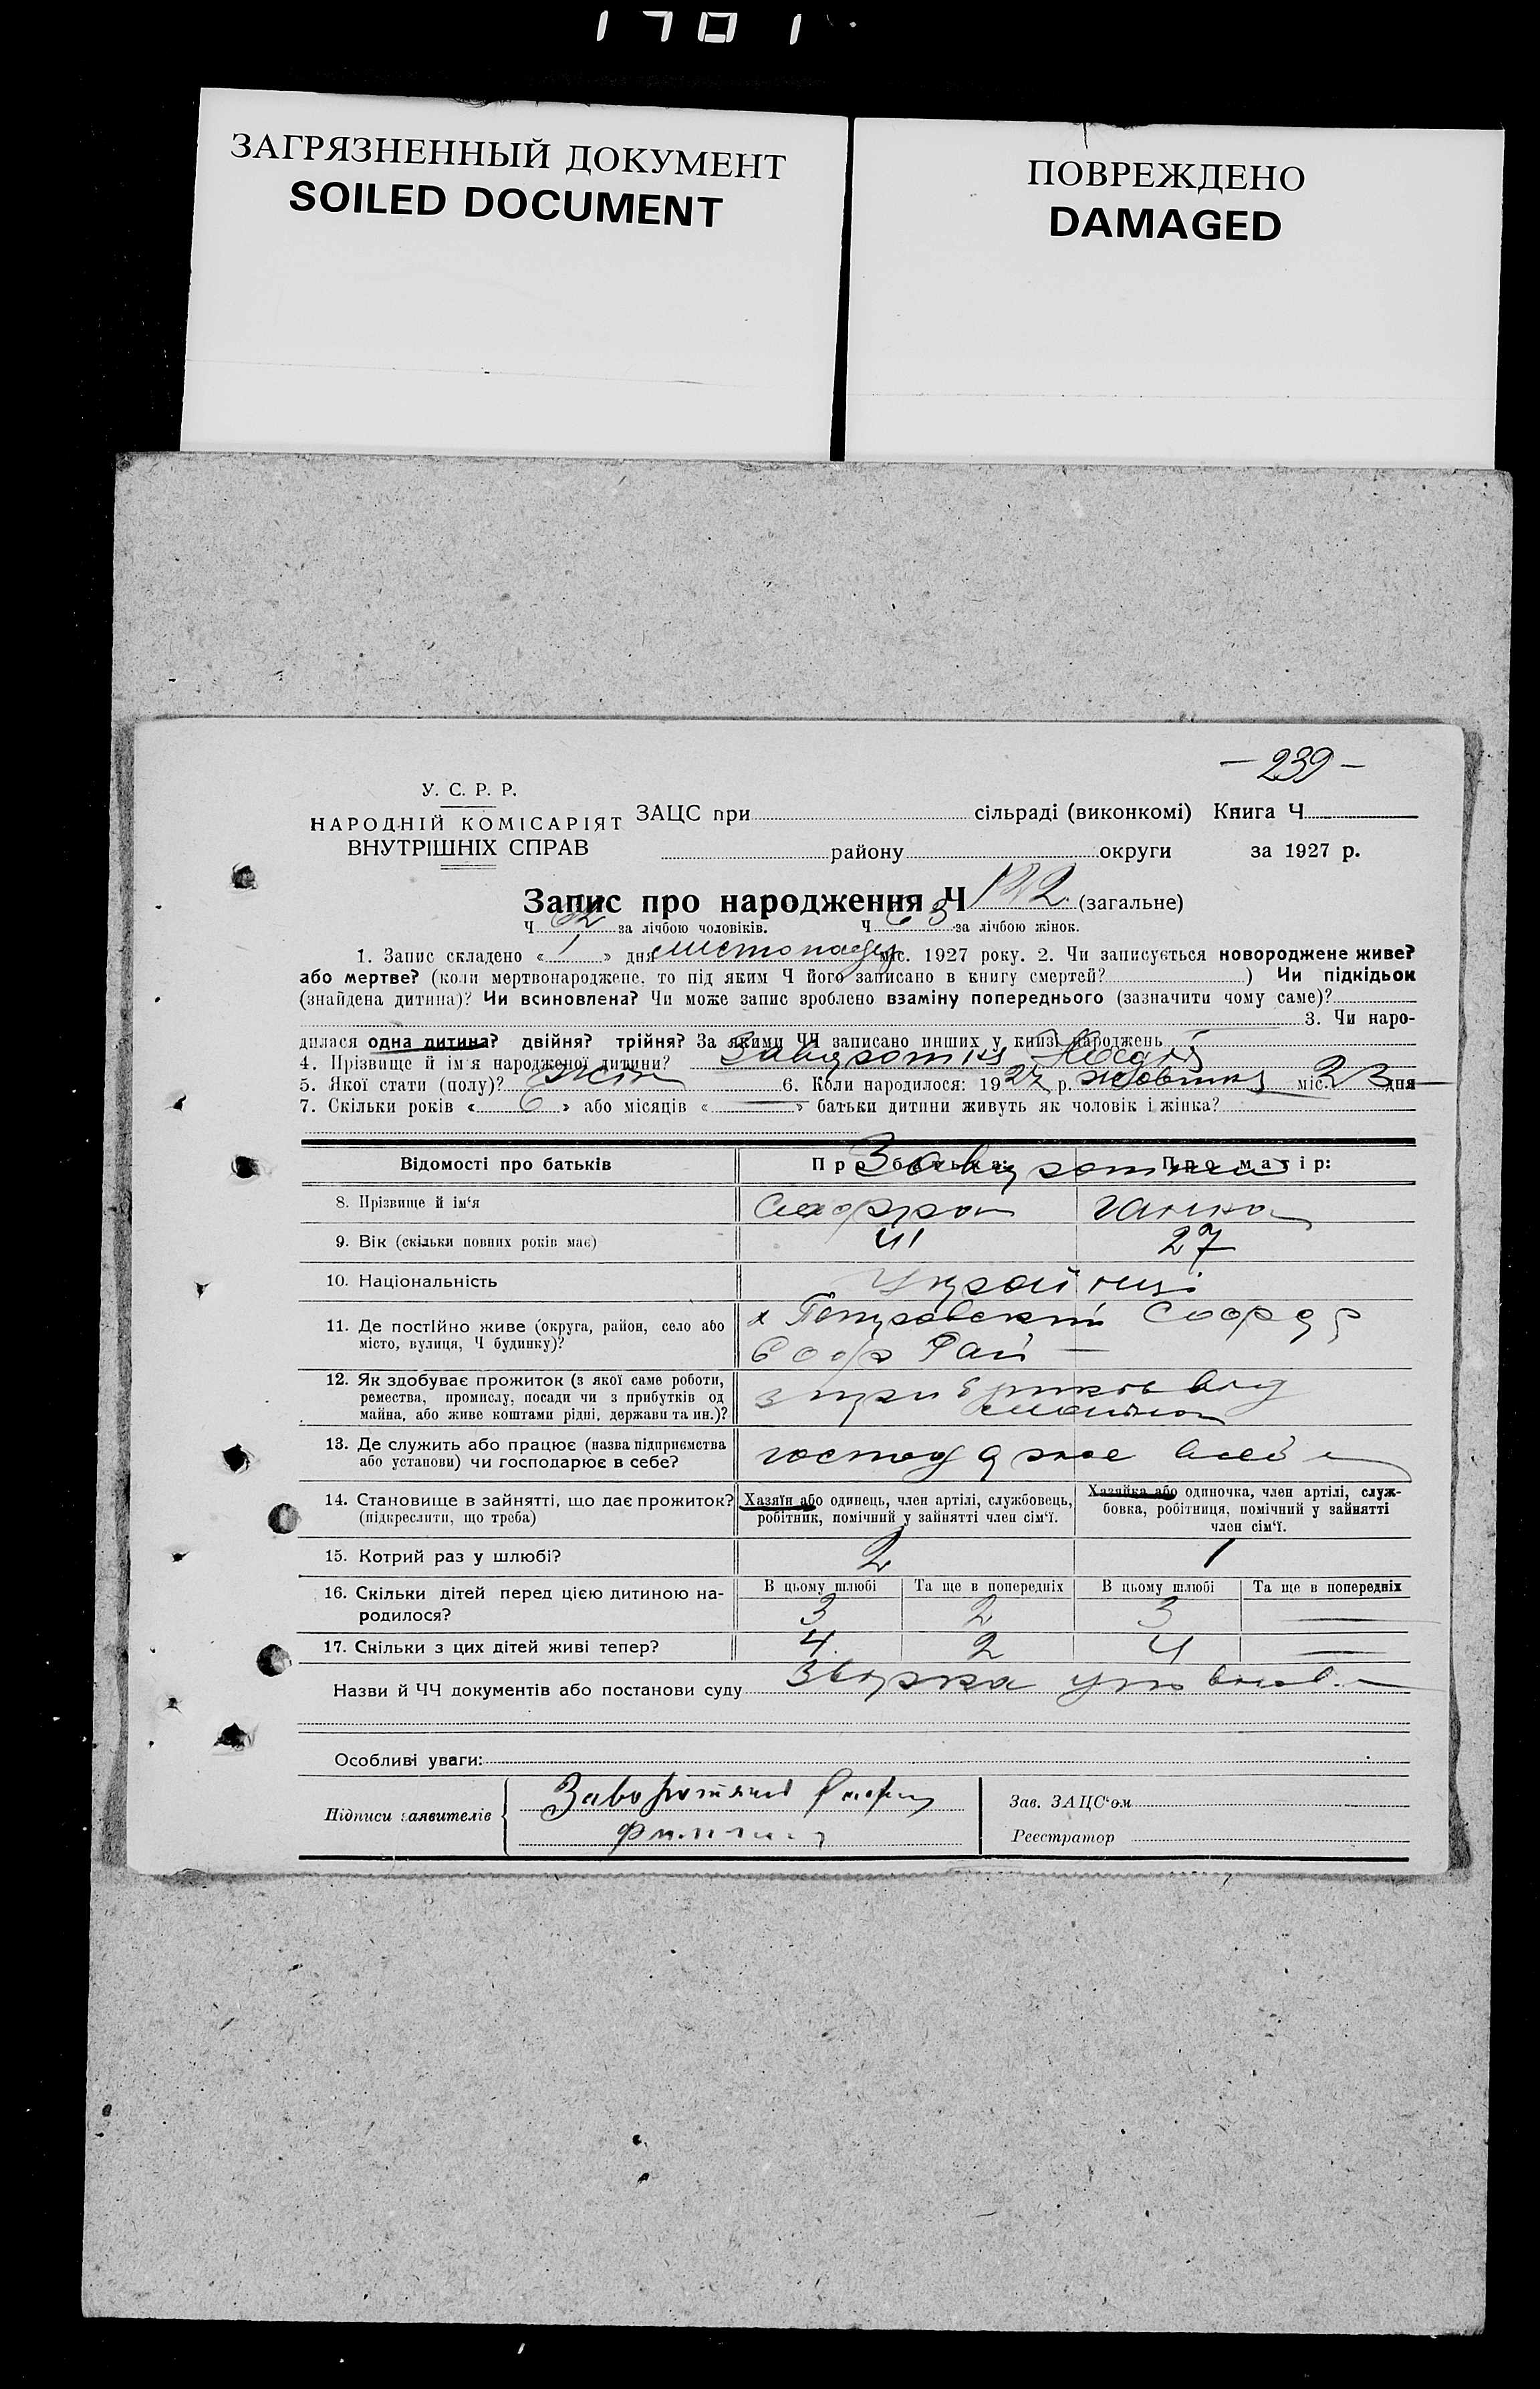 1701
ЗАГРЯЗНЕННЫЙ ДОКУМЕНТ
SOILED DOCUMENT
ПОВРЕЖДЕНО
DAMAGED
— 239 —
У. С. Р. Р.
НАРОДНІЙ КОМІСАРІЯТ
ВНУТРІШНІХ СПРАВ
ЗАЦС при сільраді (виконкомі) Книга Ч
району округи за 1927 р.
Запис про народження Ч 122. (загальне)
Ч за лічбою чоловіків. Ч 63 за лічбою жінок.
1. Запис складено « 1 » дня листопаду міс. 1927 року. 2. Чи записується новороджене живе?
або мертве? (коли мертвонароджене, то під яким Ч його записано в книгу смертей? ) Чи підкідьок
(знайдена дитина)? Чи всиновлена? Чи може запис зроблено взаміну попереднього (зазначити чому саме)?
3. Чи наро-
дилася одна дитина? двійня? трійня? За якими ЧЧ записано инших у книзі народжень
4. Прізвище й ім'я народженої дитини?
5. Якої стати (полу)? жін 6. Коли народилося: 1927 р. жовтня міс. 23 дня
7. Скільки років « 6 » або місяців « — » батьки дитини живуть як чоловік і жінка?
Відомості про батьків Про батька: Про матір:
8. Прізвище й ім'я Ганна
9. Вік (скільки повних років має) 41 27
10. Національність Українці
11. Де постійно живе (округа, район, село або
місто, вулиця, Ч будинку)?
12. Як здобуває прожиток (з якої саме роботи,
ремества, промислу, посади чи з прибутків од
майна, або живе коштами рідні, держави та ин.)?
13. Де служить або працює (назва підприємства
або установи) чи господарює в себе?
14. Становище в зайнятті, що дає прожиток?
(підкреслити, що треба)
Хазяїн або одинець, член артілі, службовець,
робітник, помічний у зайнятті член сім'ї.
Хазяйка або одиночка, член артілі, служ-
бовка, робітниця, помічний у зайнятті
член сім'ї.
15. Котрий раз у шлюбі? 2 1
16. Скільки дітей перед цією дитиною на-
родилося?
В цьому шлюбі Та ще в попередніх В цьому шлюбі Та ще в попередніх
3 2 3 —
17. Скільки з цих дітей живі тепер? 4 2 4 —
Назви й ЧЧ документів або постанови суду
Особливі уваги:
Підписи заявителів
Зав. ЗАЦС'ом
Реєстратор